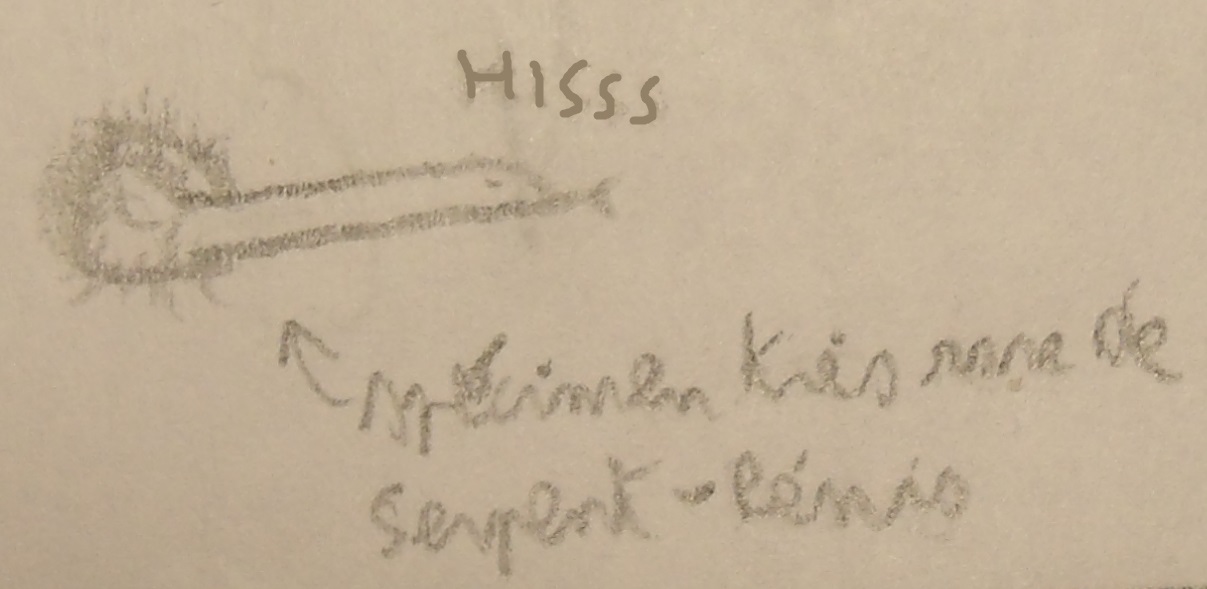 HISSS
spécimen très rare de
serpent-Pénis